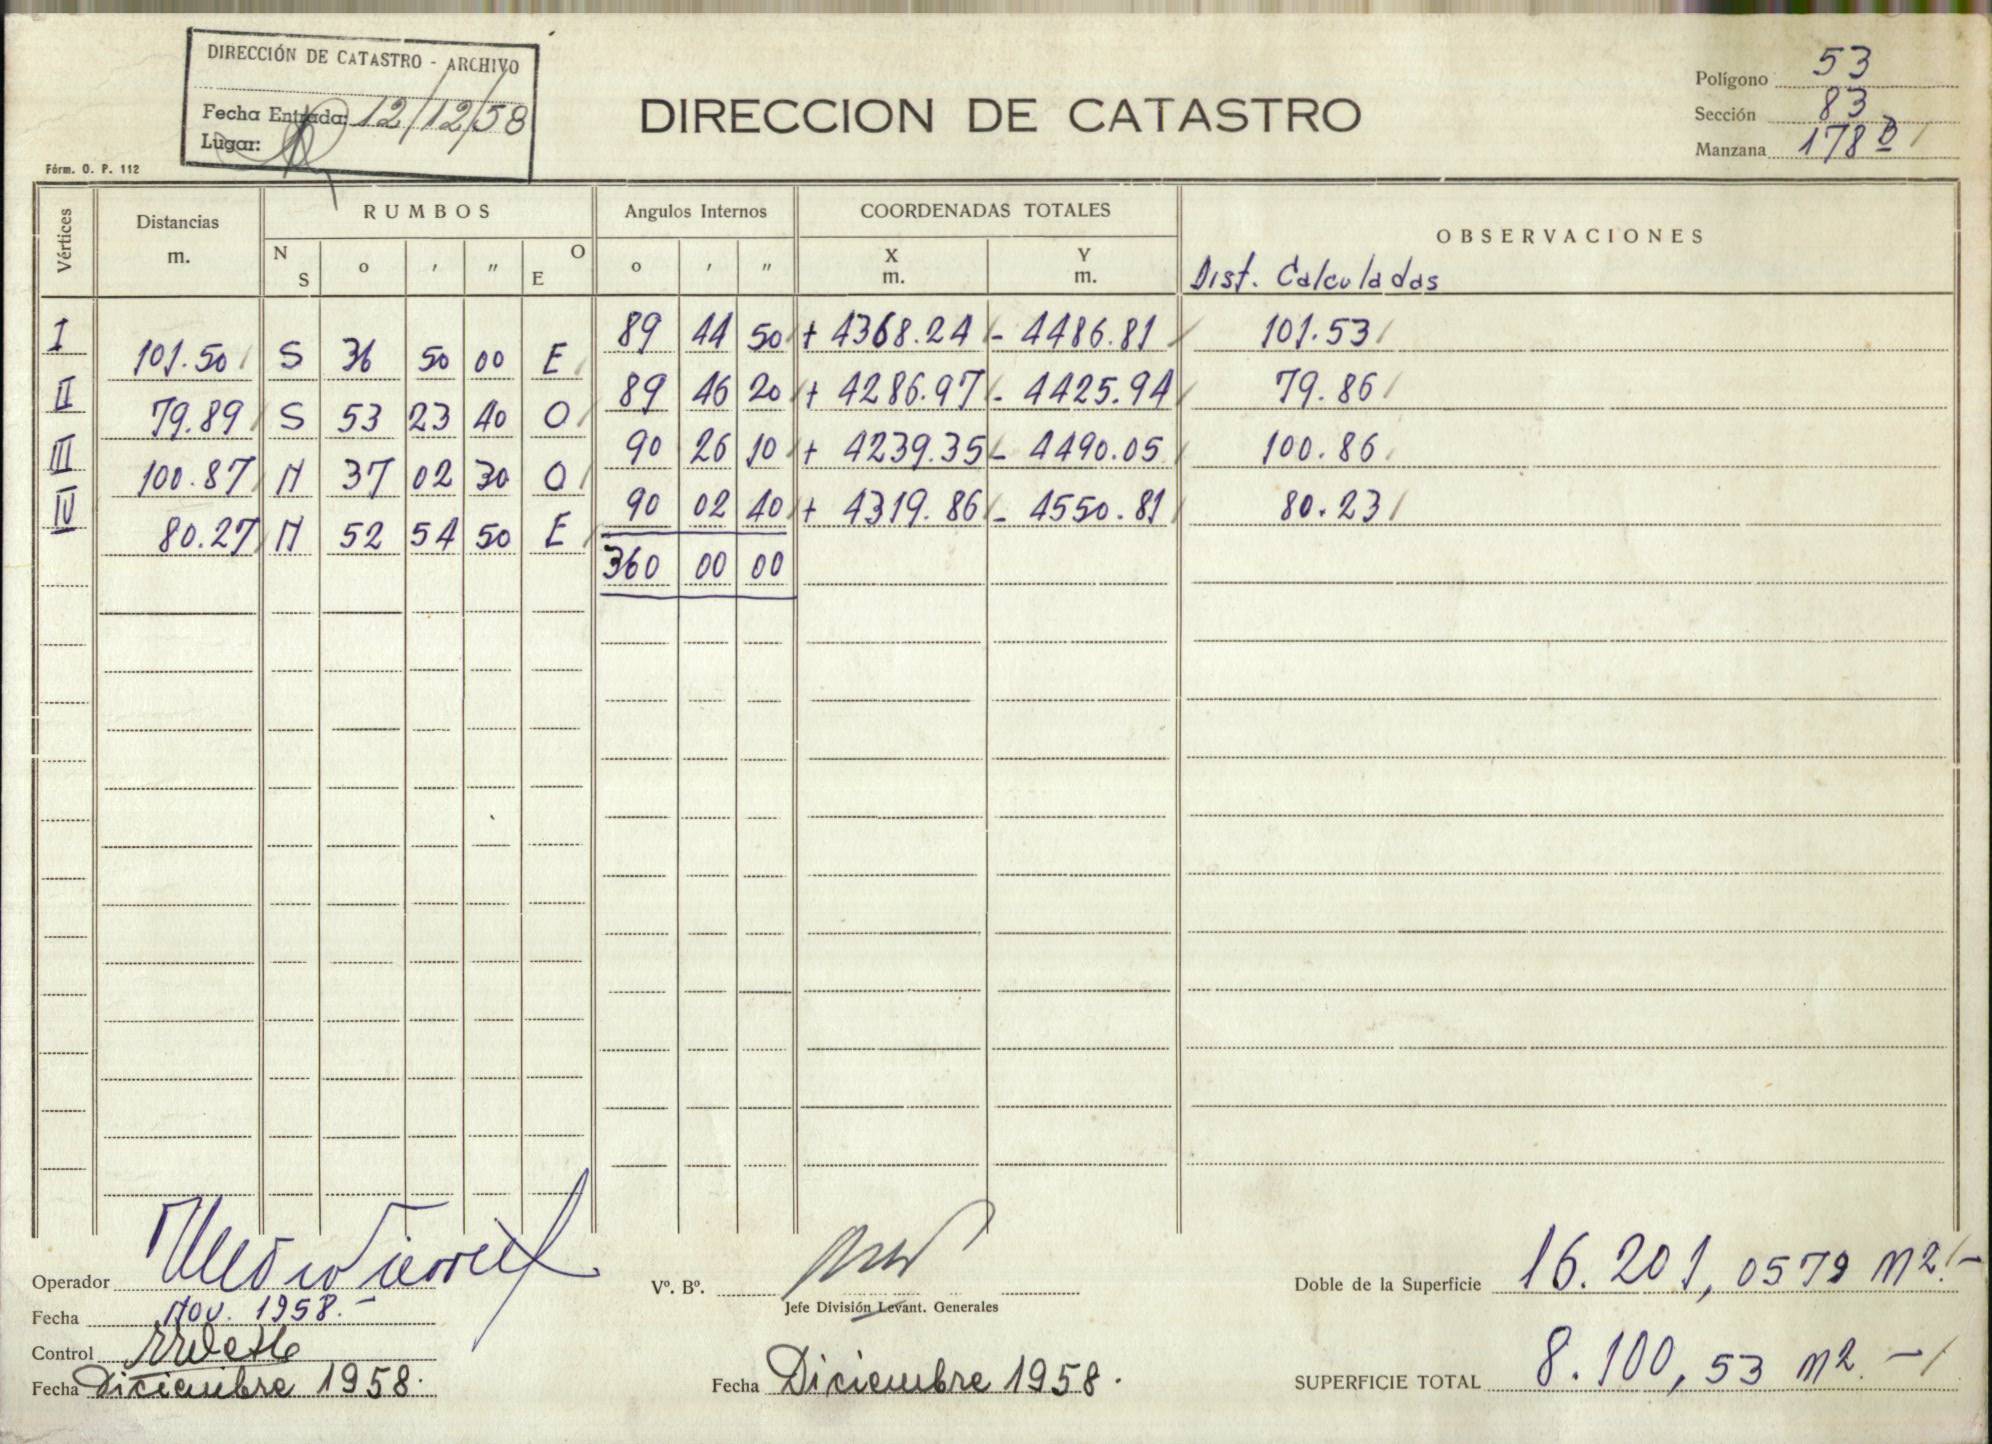 DIRECCIÓN DE CATASTRO - ARCHIVO
Fecha Entrada: 12/12/58
Lugar:
Fórm. O. P. 112
DIRECCION DE CATASTRO
Polígono 53
Sección 83
Manzana 178 B
Vértices Distancias m. RUMBOS Angulos Internos COORDENADAS TOTALES OBSERVACIONES
N S o ' " O E o ' " X m. Y m. Dist. Calculadas
I 89 44 50 + 4368.24 - 4486.81 101.53
101.50 S 36 50 00 E
II 89 46 20 + 4286.97 - 4425.94 79.86
79.89 S 53 23 40 O
III 90 26 10 + 4239.35 - 4490.05 100.86
100.87 N 37 02 30 O
IV 90 02 40 + 4319.86 - 4550.81 80.23
80.27 N 52 54 50 E
360 00 00
Operador
Fecha Nov. 1958.-
Control
Fecha Diciembre 1958.
Vº. Bº.
Jefe División Levant. Generales
Fecha Diciembre 1958.
Doble de la Superficie 16.201,0579 m2.-
SUPERFICIE TOTAL 8.100,53 m2.-